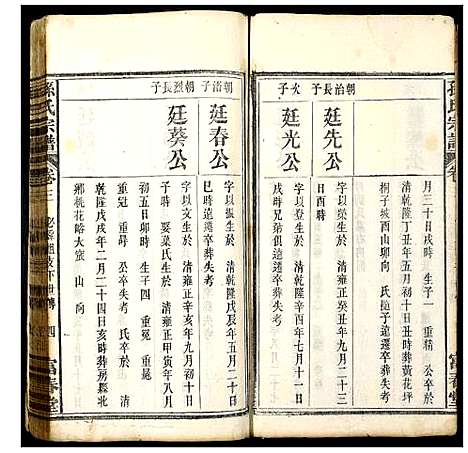 孫氏宗譜
卷
富春堂
月三十日戌時 生子一 公卒於
清乾隆丁丑年五月初十日丑時葬黃花坪
桐子坡酉山卯向 氏随子遠遷卒葬失考
朝治長子
廷先公
字以榮生於 清雍正癸丑年九月二十三
日酉時
次子
廷光公
字以登生於 清乾隆辛酉年七月十一日
戌時兄弟俱遠遷卒葬失考
朝治子
廷春公
字以振生於 清乾隆戊辰年五月二十日
巳時遠遷卒葬失考
朝烈長子
廷葵公
字以文生於 清雍正甲寅年八月
子時 娶葉氏生於 清雍正 年九月初十
初五日卯時 生子四 重冕 重
重冠 重 公卒失考 氏卒於 清
乾隆庚戌年二月二十四日亥時葬房縣
鄉桃花峪大 山 向
孫氏宗譜
卷三
四
富春堂